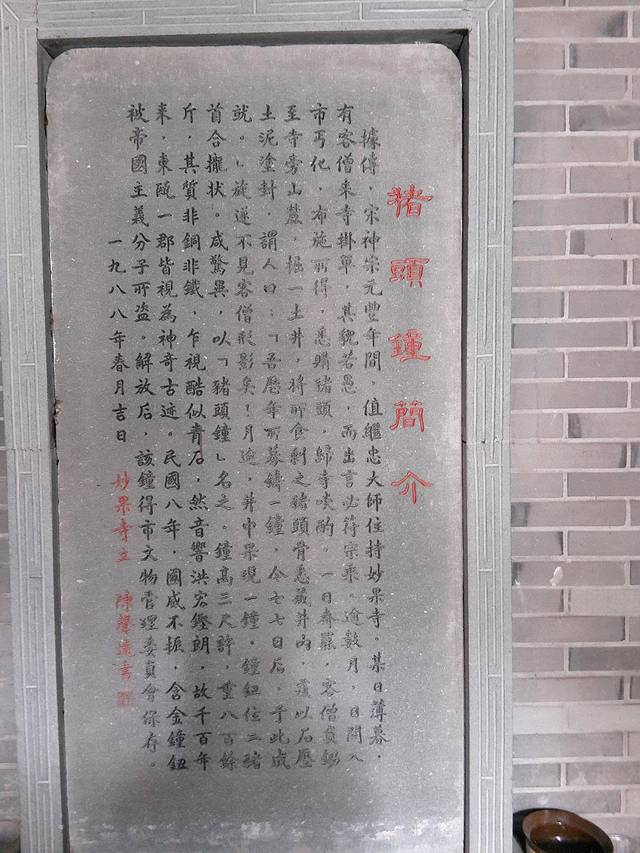 豬頭鐘簡介
據傳，宋神宗元豐年間，值繼忠大師住持妙果寺。某日薄暮，
有客僧来寺掛單，其貌若愚，而出言必符宗乘。逾數月，日間入
市丐化，布施所得，悉購豬頭，歸寺啖酌。一日齋罷，客僧負鋤
至寺旁山麓，掘一土井，將所食剩之豬頭骨悉藏井内，蓋以石壓
土泥塗封，謂人曰：「吾歷年所募鑄一鐘，今七七日后，于此成
就。」旋遂不見客僧形影矣！月逾，井中果現一鐘，鐘鈕位二豬
首合攏狀。咸驚異，以「豬頭鐘」名之。鐘高三尺許，重八百餘
斤，其質非銅非鐵，乍視酷似青石，然音響洪宏鏗朗，故千百年
来，東甌一郡皆視為神奇古迹。民國八年，國威不振，含金鐘鈕
被帝國主義分子所盗。解放后，該鐘得市文物管理委員會保存。
一九八八年春月吉日 妙果寺立 陳聲遠書